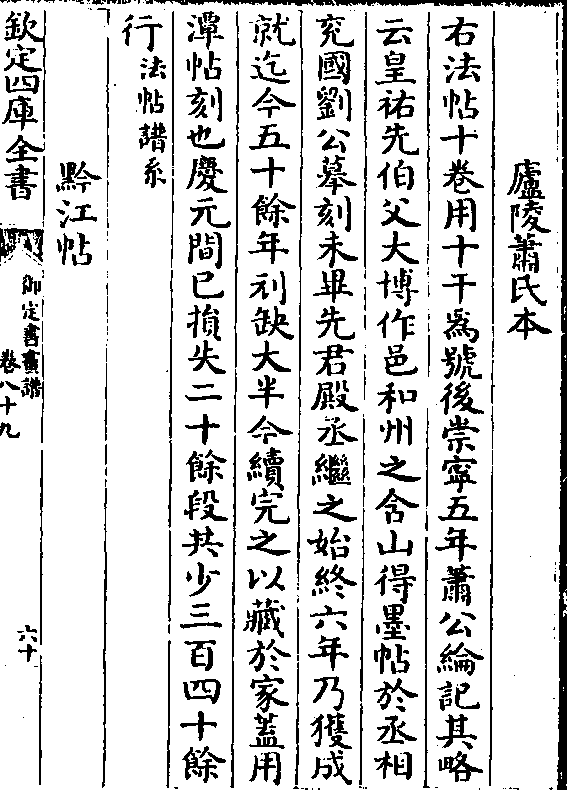 廬陵蕭氏本
右法帖十卷用十干爲號後崇寧五年蕭公綸記其略
云皇祐先伯父大博作邑和州之含山得墨帖於丞相
兖國劉公摹刻未畢先君殿丞繼之始終六年乃獲成
就迄今五十餘年刓缺大半今續完之以藏於家蓋用
潭帖刻也慶元間已損失二十餘段共少三百四十餘
行法帖譜系
黔江帖
欽定四庫全書
御定書畫譜
卷八十九
六十